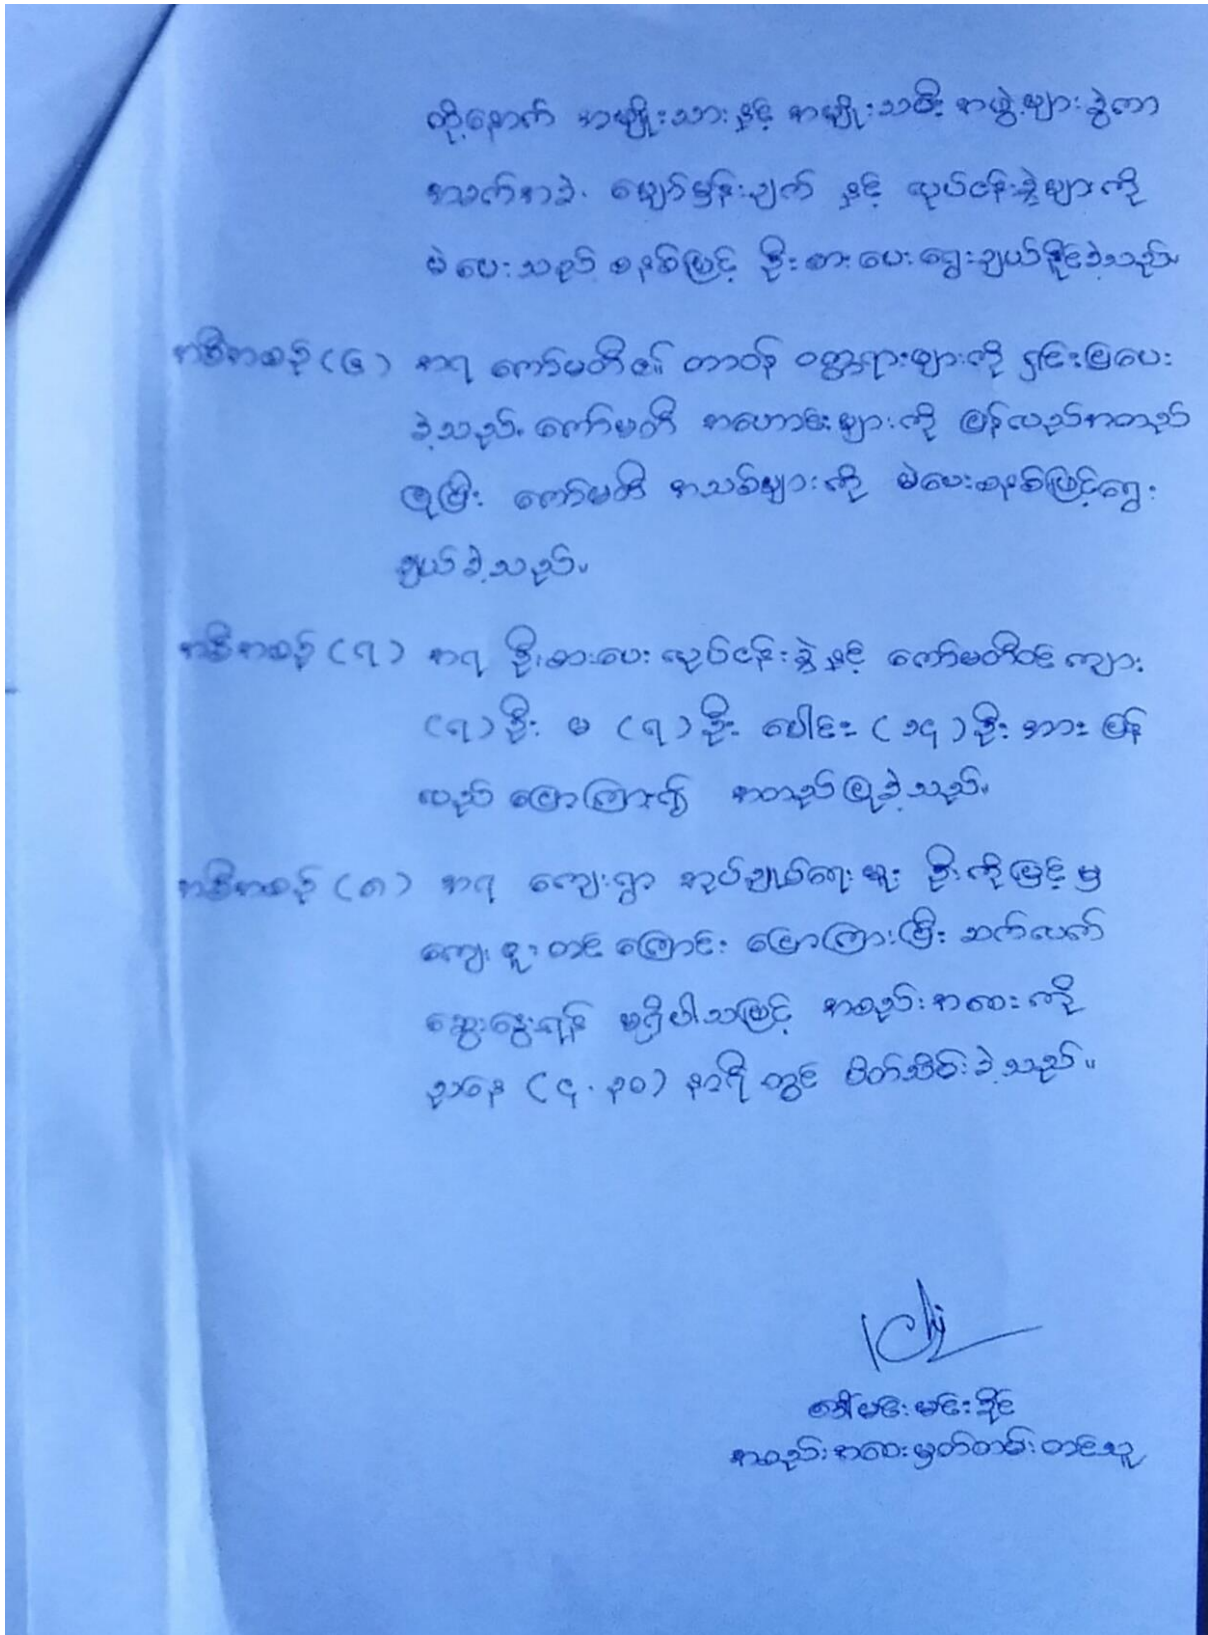 ထို့နောက် အမျိုးသားနှင့် အမျိုးသမီး အဖွဲ့များခွဲကာ
အခက်အခဲ၊ မျှော်မှန်းချက် နှင့် လုပ်ငန်းခွဲများကို
မဲပေးသည့် စနစ်ဖြင့် ဦးစားပေးရွေးချယ်နိုင်ခဲ့သည်။
အစီအစဉ် (၆) အရ ကော်မတီ၏ တာဝန် ဝတ္တရားများကို ရှင်းပြပေး
ခဲ့သည်။ ကော်မတီ အဟောင်းများကို ပြန်လည်အတည်
ပြုပြီး ကော်မတီ အသစ်များကို မဲပေးစနစ်ဖြင့်ရွေး
ချယ်ခဲ့သည်။
အစီအစဉ် (၇) အရ ဦးစားပေး လုပ်ငန်းခွဲနှင့် ကော်မတီဝင် ကျား
(၇) ဦး မ (၇) ဦး ပေါင်း (၁၄) ဦး အား ပြန်
လည် ပြောကြား၍ အတည်ပြုခဲ့သည်။
အစီအစဉ် (၈) အရ ကျေးရွာ အုပ်ချုပ်ရေးမှူး ဦးကိုမြင့် မှ
ကျေးဇူးတင် ကြောင်း ပြောကြားပြီး ဆက်လက်
ဆွေးနွေးရန် မရှိပါသဖြင့် အစည်းအဝေးကို
ညနေ (၄.၃၀) နာရီ တွင် ပိတ်သိမ်းခဲ့သည်။
ဒေါ်မင်းမင်းခိုင်
အစည်းအဝေးမှတ်တမ်းတင်သူ